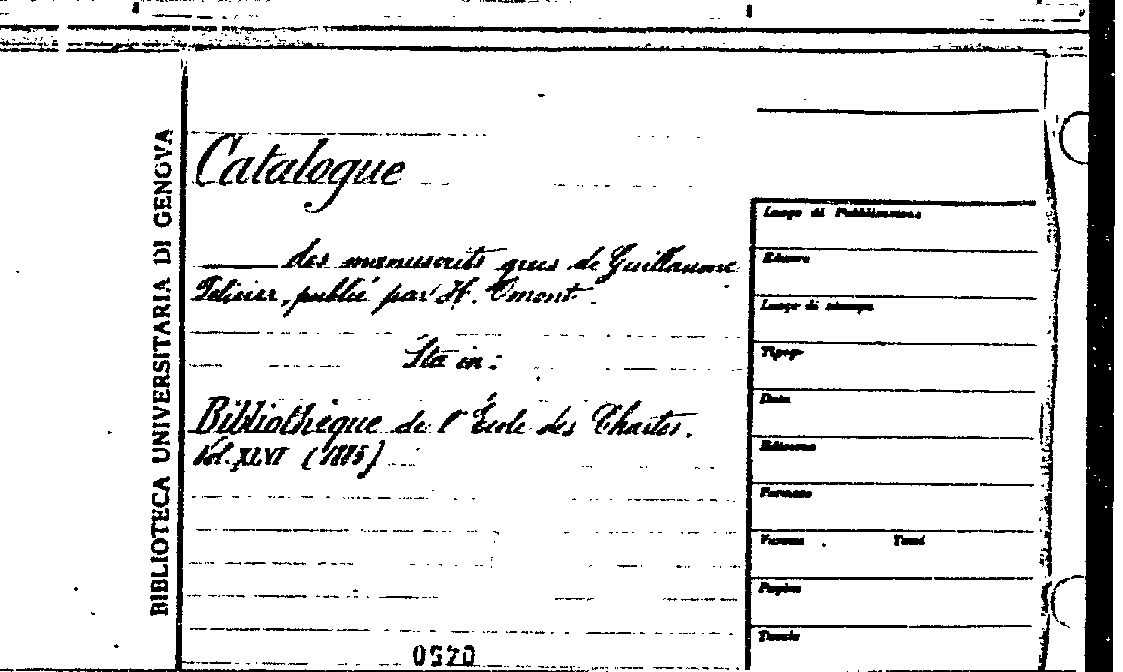 BIBLIOTECA UNIVERSITARIA DI GENOVA
Catalogue
des manuscrits grecs de Guillaume
Pelicier, publié par H. Omont.
Sta in:
Bibliothèque de l'École des Chartes.
Vol. XLVI (1885)
0520
Luogo di Pubblicazione
Editore
Luogo di stampa
Tipogr
Data
Edizione
Formato
Volume Tomi
Pagine
Tavole